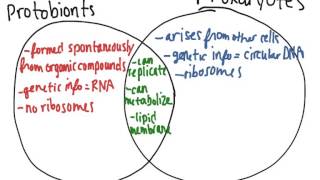 Protobionts
Prokaryotes
- formed spontaneously
from organic compounds
- genetic info = RNA
- no ribosomes
- can
replicate
- can
metabolize
- lipid
membrane
- arises from other cells
- genetic info = circular DNA
- ribosomes